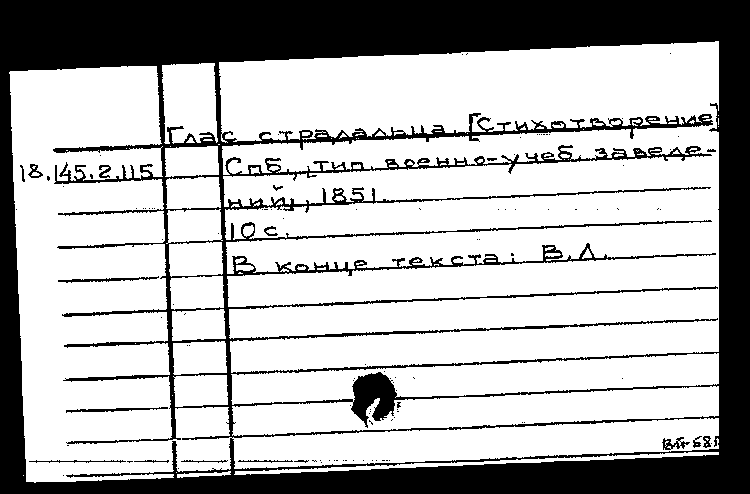 Глас страдальца. [Стихотворение]
18.145.2.115
Спб., тип. военно-учеб. заведе-
ний, 1851.
10 с.
В конце текста: В.Л.